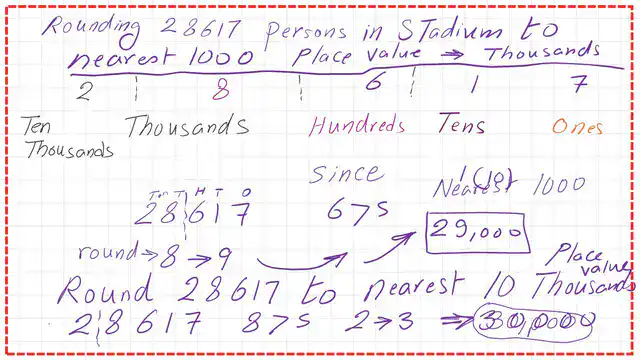 Rounding 28617 persons in STadium to
nearest 1000 Place value → Thousands
2 8 6 1 7
Ten Thousands Thousands Hundreds Tens Ones
Since
Nearest 1000
TTH T H T O
28617 6>5
29,000
round → 8 → 9
Place value
Round 28617 to nearest 10 Thousands
28617 8>5 2→3 ⇒ 30,000